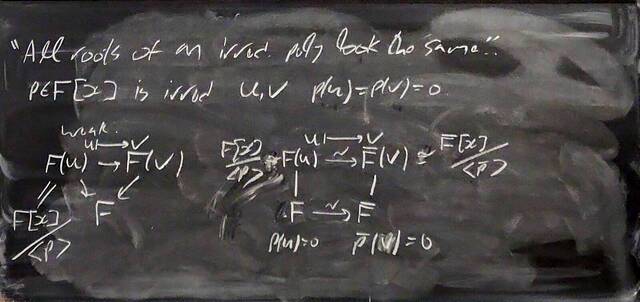 "All roots of an irred. poly look the same".
p∈F[x] is irred u,v p(u)=p(v)=0.
weak.
u ↦ v
F(u) → F(v)
F[x]/<p>
F
u ↦ v
F[x]/<p> ≅ F(u) ≃→ F̄(v) ≅ F[x]/<p̄>
F ~→ F̄
p(u)=0 p̄(v)=0